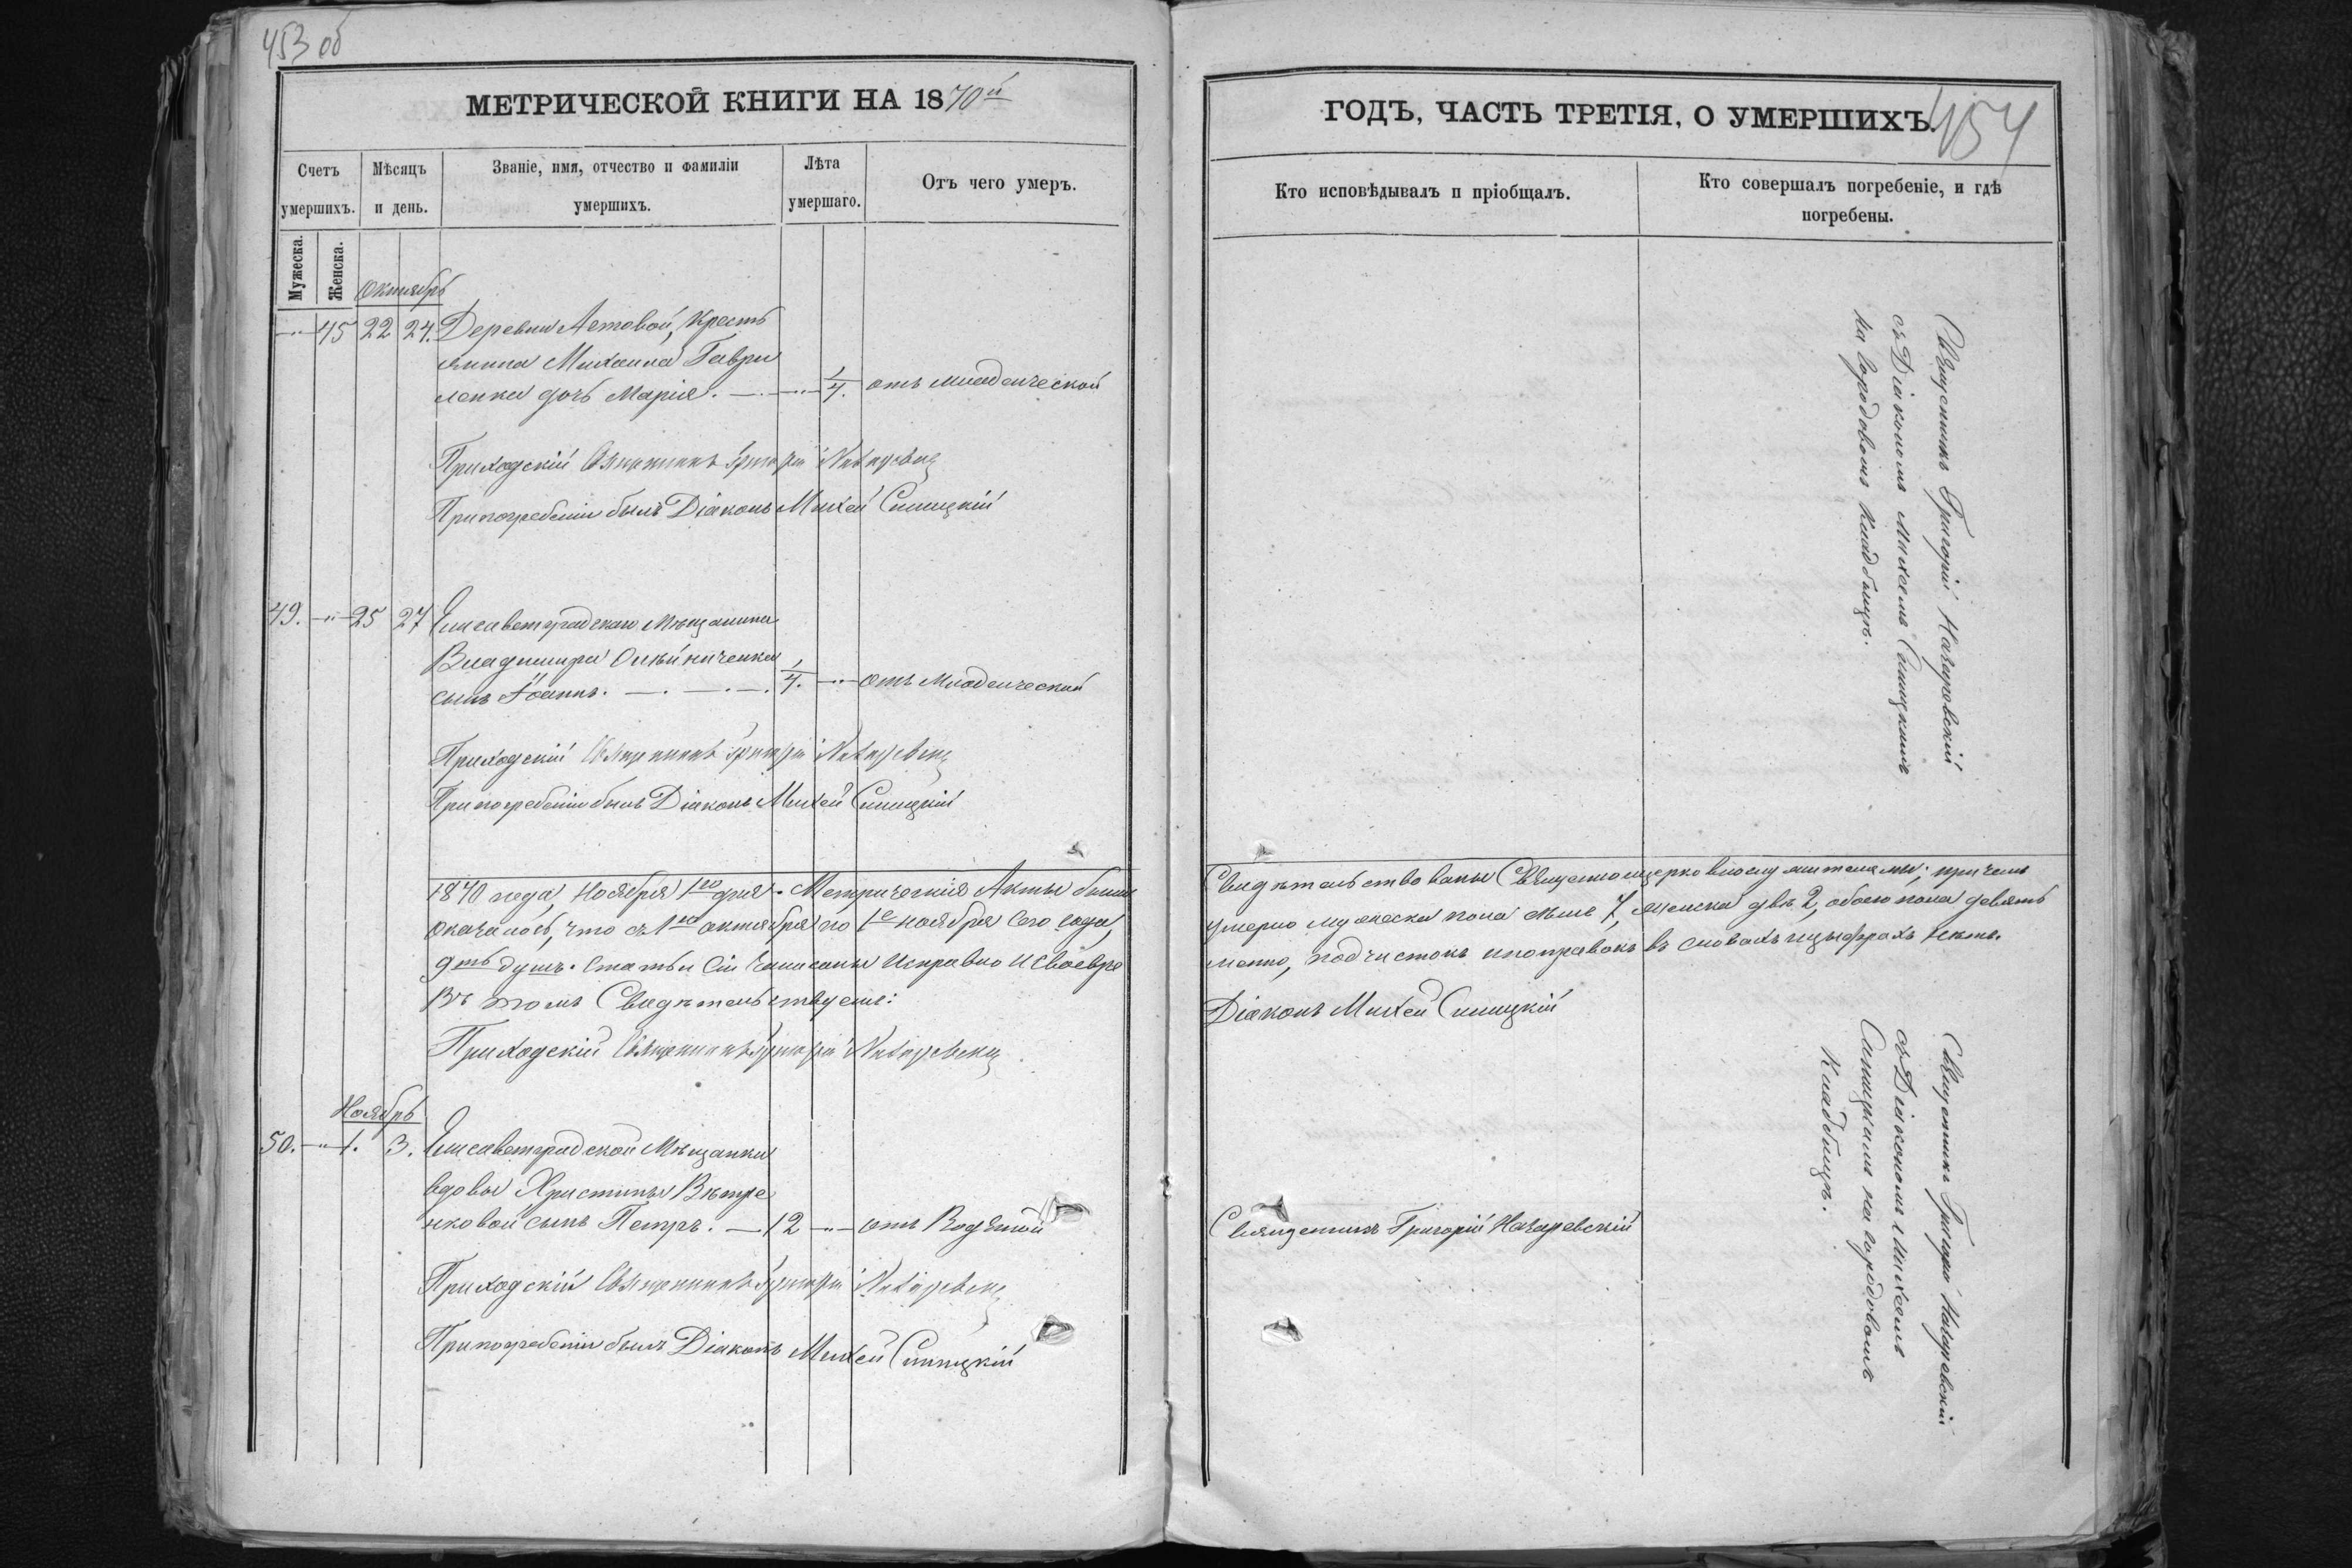 453 об
МЕТРИЧЕСКОЙ КНИГИ НА 1870й
Счетъ умершихъ.
Мѣсяцъ и день.
Званіе, имя, отчество и фамиліи умершихъ.
Лѣта умершаго.
Отъ чего умеръ.
Мужеска.
Женска.
Октябрь
45 22 24. Деревни Летовой, Кресть
янина Михаила Гаври
ленка дочь Марія. 1/4. отъ младенческой
Приходскій Священникъ Григорій Назаревскій
При погребеніи былъ Діаконъ Михей Синицкій
49. 25 27 Елисаветградскаго Мѣщанина
Владимира Олѣйниченка
сынъ Іоаннъ. 1/4. отъ младенческий
Приходскій Священникъ Григорій Назаревскій
При погребеніи былъ Діаконъ Михей Синицкій
1870 года, Ноября 1го дня. Метрическія Акты были
оказалось, что съ 1го октября по 1е ноября сего года,
9ть душъ. Статьи сіи записаны исправно и своевре
Въ томъ Свидѣтельствуемъ:
Приходскій Священникъ Григорій Назаревскій
Ноябрь
50. 1. 3. Елисаветградской Мѣщанки
вдовы Христины Вѣтре
нковой сынъ Петръ. 12 отъ Водяной
Приходскій Священникъ Григорій Назаревскій
При погребеніи былъ Діаконъ Михей Синицкій
ГОДЪ, ЧАСТЬ ТРЕТІЯ, О УМЕРШИХЪ.
454
Кто исповѣдывалъ и пріобщалъ.
Кто совершалъ погребеніе, и гдѣ
погребены.
Священникъ Григорій Назаревскій
съ Діакономъ Михеемъ Синицкимъ
на городовомъ кладбищѣ.
Свидѣтельствованы Священноцерковнослужителями; причемъ
умерло мужеска пола семь 7, женска двѣ 2, обоего пола девять
менно, подчистокъ и поправокъ въ словахъ и цыфрахъ нѣтъ.
Діаконъ Михей Синицкій
Священникъ Григорій Назаревскій
Священникъ Григорій Назаревскій
съ Діакономъ Михеемъ
Синицкимъ на городовомъ
Кладбищѣ.